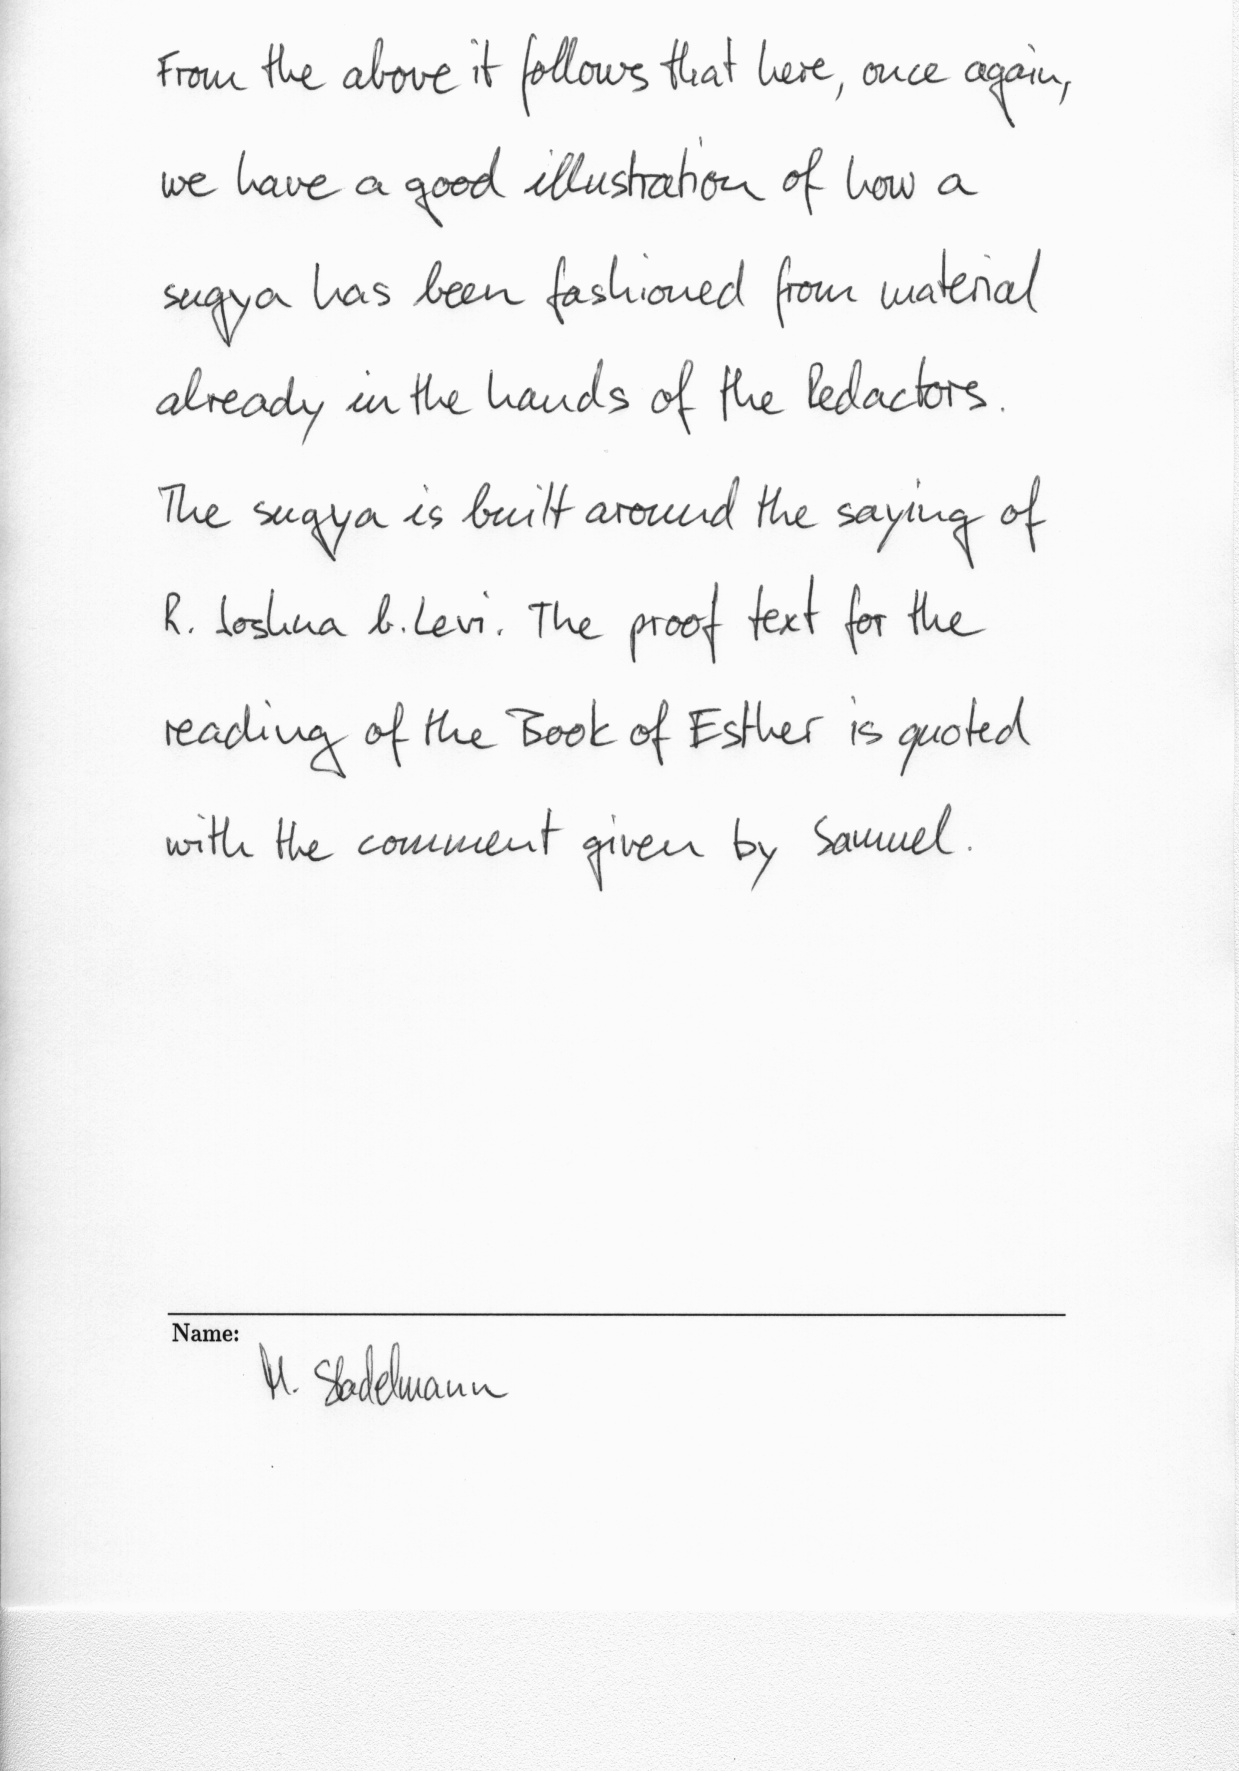 From the above it follows that here, once again,
we have a good illustration of how a
sugya has been fashioned from material
already in the hands of the Redactors.
The sugya is built around the saying of
R. Joshua b. Levi. The proof text for the
reading of the Book of Esther is quoted
with the comment given by Samuel.
Name:
M. Stadelmann